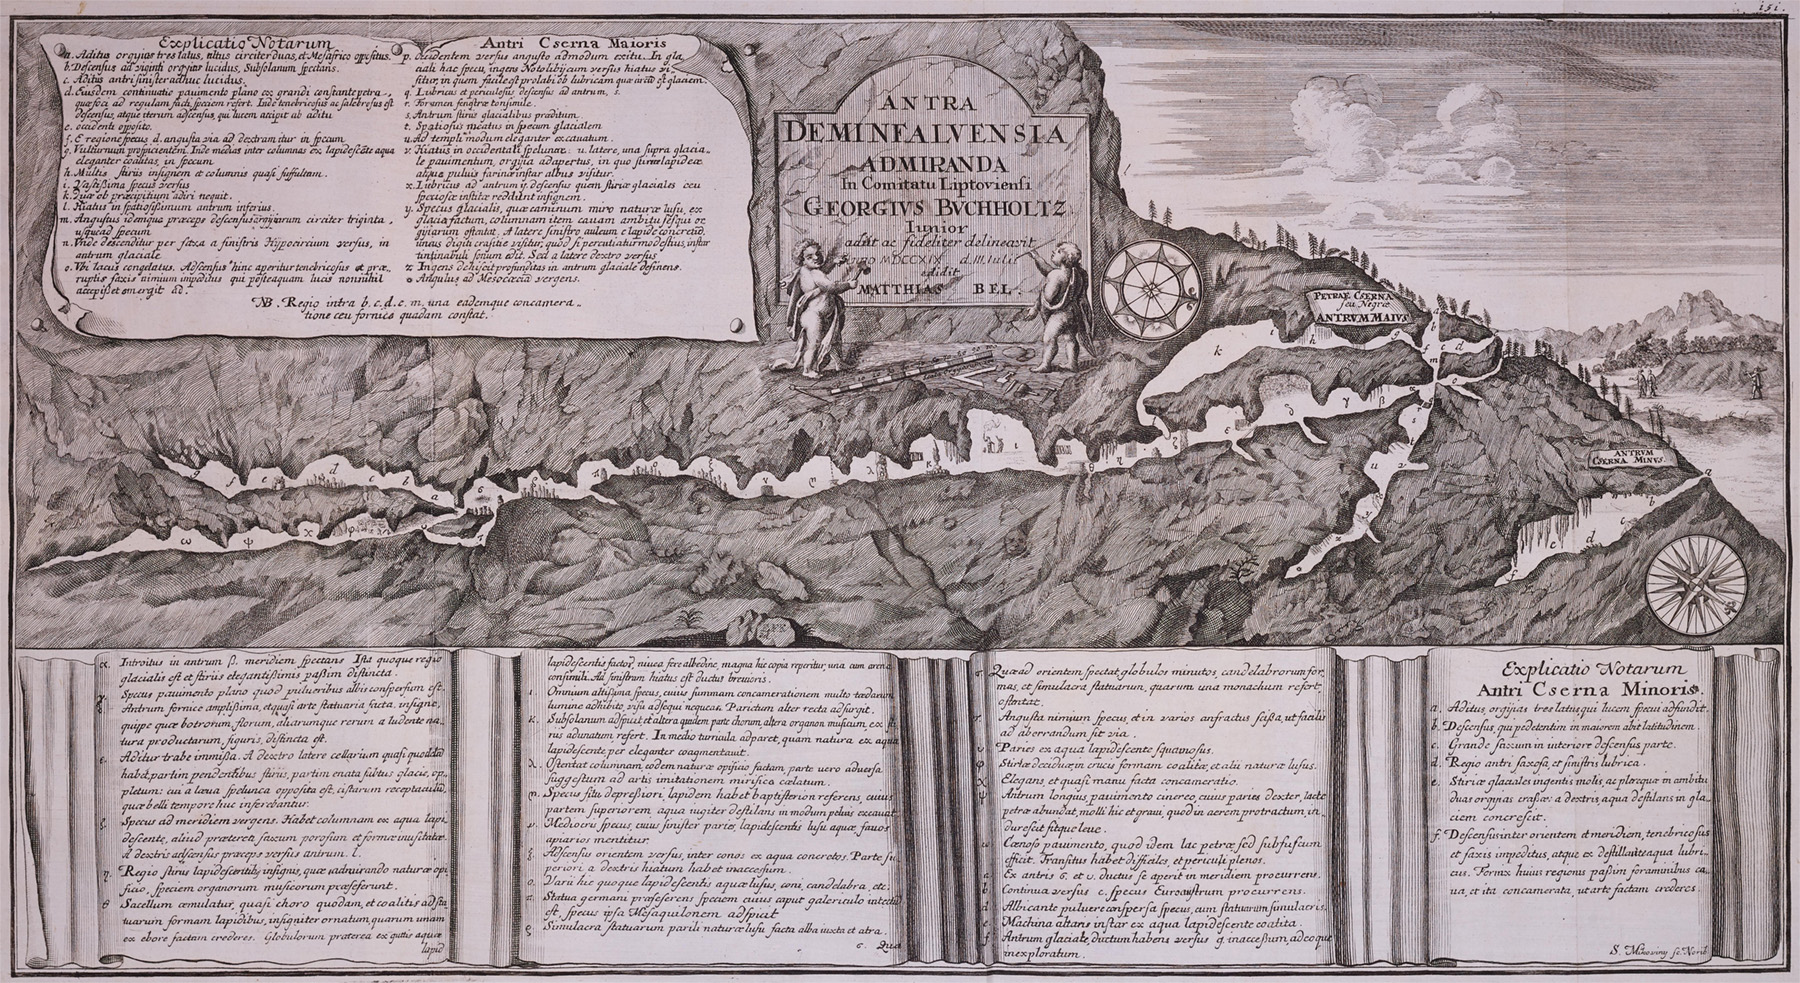 151.
Explicatio Notarum
Antri Cserna Maioris
a. Aditus orgyias tres latus, altus circiter duas, et Mesafrico oppositus.
b. Descensus ad viginti orgyias lucidus, Subsolanum spectans.
c. Aditus antri sinister adhuc lucidus.
d. Eiusdem continuatio pavimento plano ex grandi constante petra,
quasi foci ad regulam facti, speciem refert. Inde tenebricosus ac salebrosus est
descensus, atque iterum adscensus, qui lucem accipit ab aditu
e. occidenti opposito.
f. E regione specus d. angusta via ad dextram itur in specum
g. Vulturnum prospicientem. Inde medias inter columnas ex lapidescente aqua
eleganter coalitas, in specum
h. Multis stiriis insignem et columnis quasi suffultam.
i. Vastissima specus versus
k. Quae ob praecipitium adiri nequit.
l. Hiatus in spatiosissimum antrum inferius.
m. Angustus idemque praeceps descensus orgyiarum circiter triginta,
usque ad specum
n. Unde descenditur per saxa a sinistris Hypocircium versus, in
antrum glaciale
o. Ubi lacus congelatus. Adscensus hinc aperitur tenebricosus et prae-
ruptis saxis nimium impeditus qui posteaquam lucis nonnihil
accepisset emergit ad.
p. Occidentem versus angusto admodum exitu. In gla
ciali hac specu, ingens Notolibycum versus hiatus vi-
situr, in quem facile est prolabi ob lubricam quae circa est glaciem
q. Lubricus et periculosus descensus ad antrum, s.
r. Foramen fenestrae consimile.
s. Antrum stiriis glacialibus praeditum.
t. Spatiosus meatus in specum glacialem
u. Ad templi modum eleganter excavatum.
v. Hiatus in occidentali speluncae u. latere, una supra glacia-
le pavimentum, orgyia adapertus, in quo stiriae lapideae
aliae pulvis farinae instar albus visitur.
x. Lubricus ad antrum y. descensus quem stiriae glaciales ceu
speciosae institae reddunt insignem.
y. Specus glacialis, quae caminum miro naturae lusu, ex
glacie factum, columnam item cavam ambitu sesqui or
gyiarum ostentat. A latere sinistro auleum e lapide concretum,
unius digiti crassitie visitur, quod si percutiatur modestius, instar
tintinabuli sonum edit. Sed a latere dextro versus
z. Ingens dehiscit profunditas in antrum glaciale desinens.
Angulus ad Mesocaeciam vergens.
NB. Regio intra b. c. d. e. m. una eademque concamera-
tione ceu fornice quadam constat.
ANTRA
DEMINFALVENSIA
ADMIRANDA
In Comitatu Liptoviensi
GEORGIVS BVCHHOLTZ
Iunior
adiit ac fideliter delineavit
Anno MDCCXIX d. III. Iulii
edidit
MATTHIAS BEL.
PETRAE CSERNA
seu Nigrae
ANTRVM MAIVS
ANTRVM
CSERNA MINVS.
α. Introitus in antrum β. meridiem spectans Ista quoque regio
glacialis est et stiriis elegantissimis passim distincta.
γ. Specus pavimento plano quod pulveribus albis conspersum est.
δ. Antrum fornice amplissima, et quasi arte statuaria facta, insigne,
quippe quae botrorum, florum, aliarumque rerum a ludente na-
tura productarum, figuris, distincta est.
ε. Aditur trabe immissa. A dextro latere cellarium quasi quoddam
habet, partim pendentibus stiriis, partim enata subtus glacie, op-
pletum: cui a laeva spelunca opposita est, cistarum receptaculum,
quae belli tempore huc inferebantur.
ζ. Specus ad meridiem vergens. Habet columnam ex aqua lapi-
descente, aliud praeterea, saxum porosum et formae inusitatae.
A dextris adscensus praeceps versus antrum. l.
η. Regio stiriis lapidescentibus insignis, quae admirando naturae opi
ficio, speciem organorum musicorum praeseferunt.
θ. Sacellum aemulatur, quasi choro quodam, et coalitis ad sta
tuarum formam lapidibus, insigniter ornatum, quarum unam
ex ebore factam crederes. Globulorum praeterea ex guttis aquae
lapid
lapidescentis factor, nivea fere albedine, magna hic copia reperitur, una cum arena
consimili. Ad sinistrum hiatus est ductus brevioris.
ι. Omnium altissima specus, cuius summam concamerationem multo taedarum
lumine adhibito, visu adsequi nequeas. Parietum alter recta adsurgit.
κ. Subsolanum adspicit, et altera quidem parte chorum, altera organon musicum, ex sti
riis adunatum refert. In medio turricula adparet, quam natura ex aqua
lapidescente per eleganter coagmentavit.
λ. Ostentat columnam eodem naturae opificio factam parte vero adversa
suggestum ad artis imitationem mirifice caelatum.
μ. Specus situ depressiori, lapidem habet baptisterion referens, cuius
partem superiorem aqua iugiter destilans in modum pelvis excavat.
ν. Mediocris specus, cuius sinister paries, lapidescentis lusu aquae, favos
apiarios mentitur.
ξ. Adscensus orientem versus, inter conos ex aqua concretos. Parte su
periori a dextris hiatum habet inaccessum.
ο. Varii hic quoque lapidescentis aquae lusus, coni, candelabra, etc.
π. Statua germani praeferens speciem cuius caput galericulo intectum
est, specus ipsa Mesaquilonem adspicit
ρ. Simulacra statuarum parili naturae lusu facta alba iuxta et atra.
σ. Quae
σ. Quae ad orientem spectat, globulos minutos, candelabrorum for
mas, et simulacra statuarum, quarum una monachum refert,
ostentat.
τ. Angusta nimium specus, et in varios anfractus scissa, ut facilis
ad aberrandum sit via.
υ. Paries ex aqua lapidescente squamosus.
φ. Stiriae deciduae in crucis formam coalitae, et alii naturae lusus.
χ. Elegans, et quasi manu facta concameratio.
ψ. Antrum longus, pavimento cinereo, cuius paries dexter, lacte
petrae abundat, molli hic et gravi, quod in aerem protractum in-
durescit fitque leve.
ω. Caenoso pavimento, quod idem lac petrae, sed subfuscum
efficit. Transitus habet difficiles, et periculi plenos.
a. Ex antris σ. et υ. ductus se aperit in meridiem procurrens.
b. Continua versus c. specus Euroaustrum procurrens.
d. Albicante pulvere conspersa specus, cum statuarum simulacris.
e. Machina altaris instar ex aqua lapidescente coalita.
f. Antrum glaciale, ductum habens versus g. inaccessum, adeoque
inexploratum.
Explicatio Notarum
Antri Cserna Minoris.
a. Aditus orgyias tres latus, qui lucem specui adfundit.
b. Descensus, qui pedetentim in maiorem abit latitudinem.
c. Grande saxum in interiore descensus parte.
d. Regio antri saxosa, et sinistris lubrica.
e. Stiriae glaciales ingentis molis, ac pleraeque in ambitu
duas orgyias crassae: a dextris aqua destilans in gla-
ciem concrescit.
f. Descensus inter orientem et meridiem, tenebricosus
et saxis impeditus, atque ex destillante aqua lubri-
cus. Fornix huius regionis passim foraminibus ca-
va, et ita concamerata, ut arte factam crederes.
S. Mikoviny sc. Norib